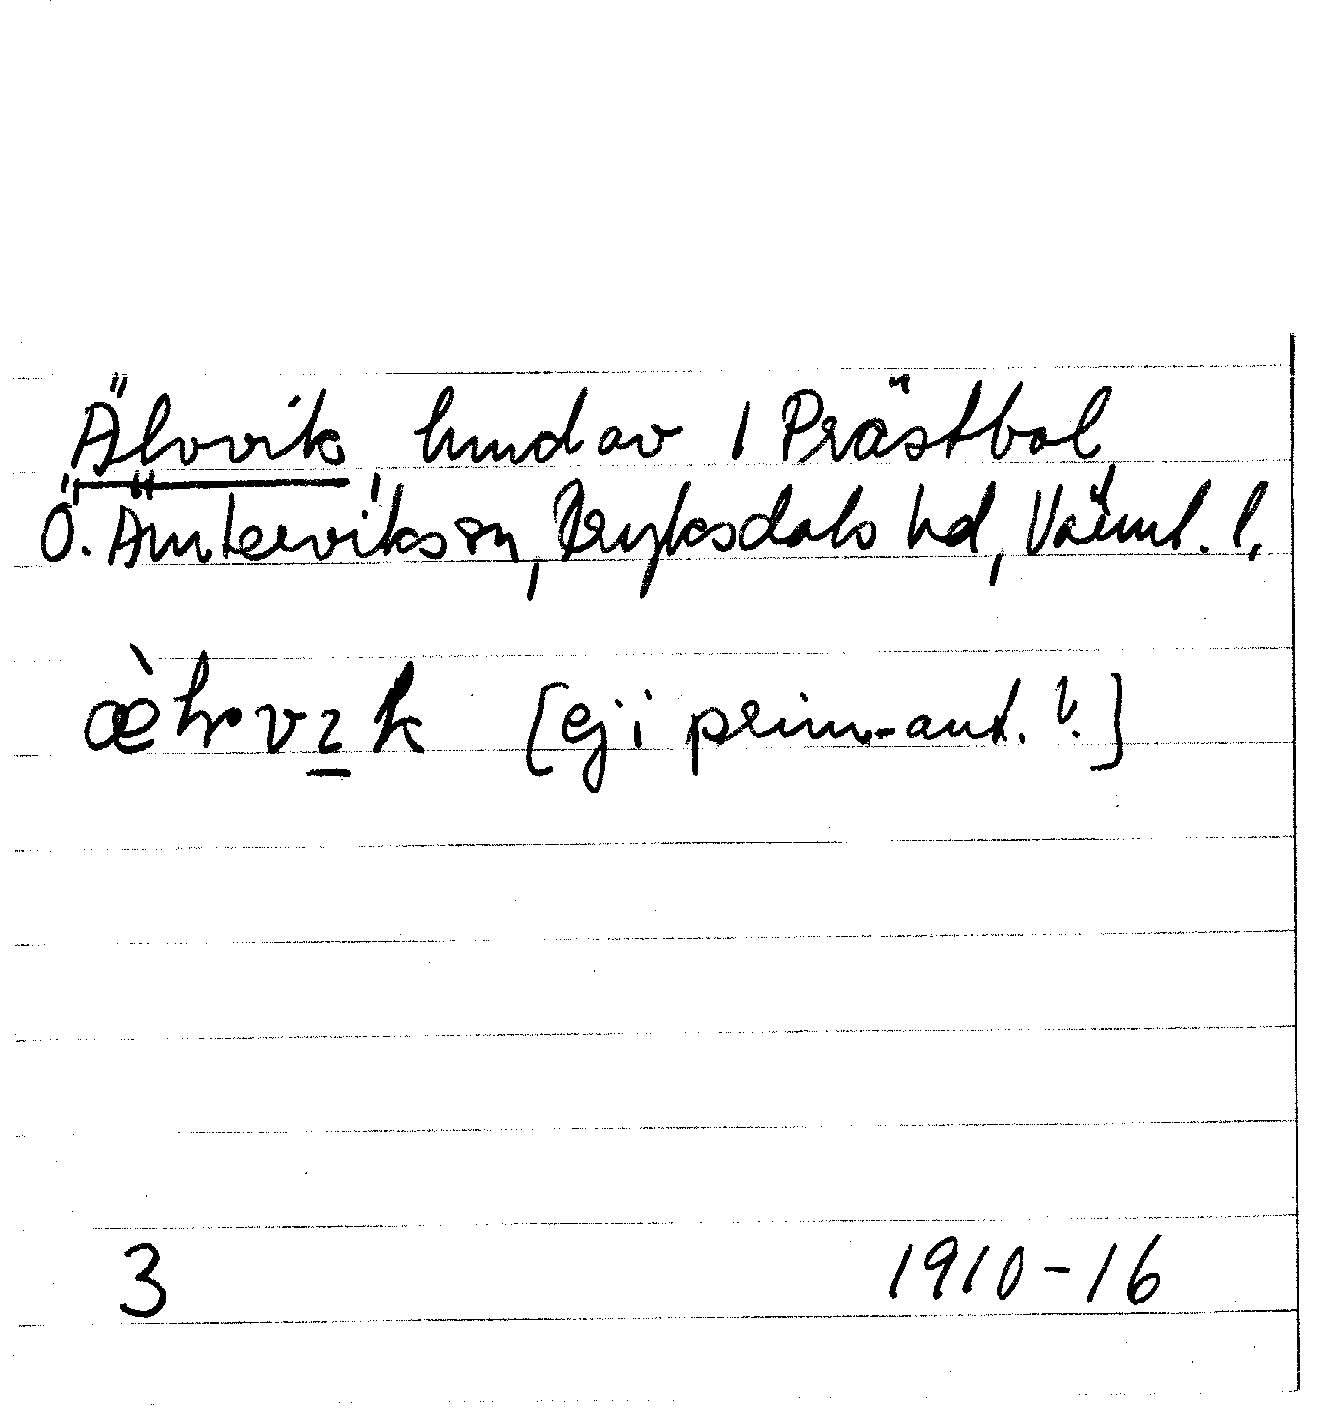 Älvvik, hmd av 1 Prästbol,
Ö. Ämterviks sn, Fryksdals hd, Värml. l.
[ej i prim.-ant.?]
3 1910-16